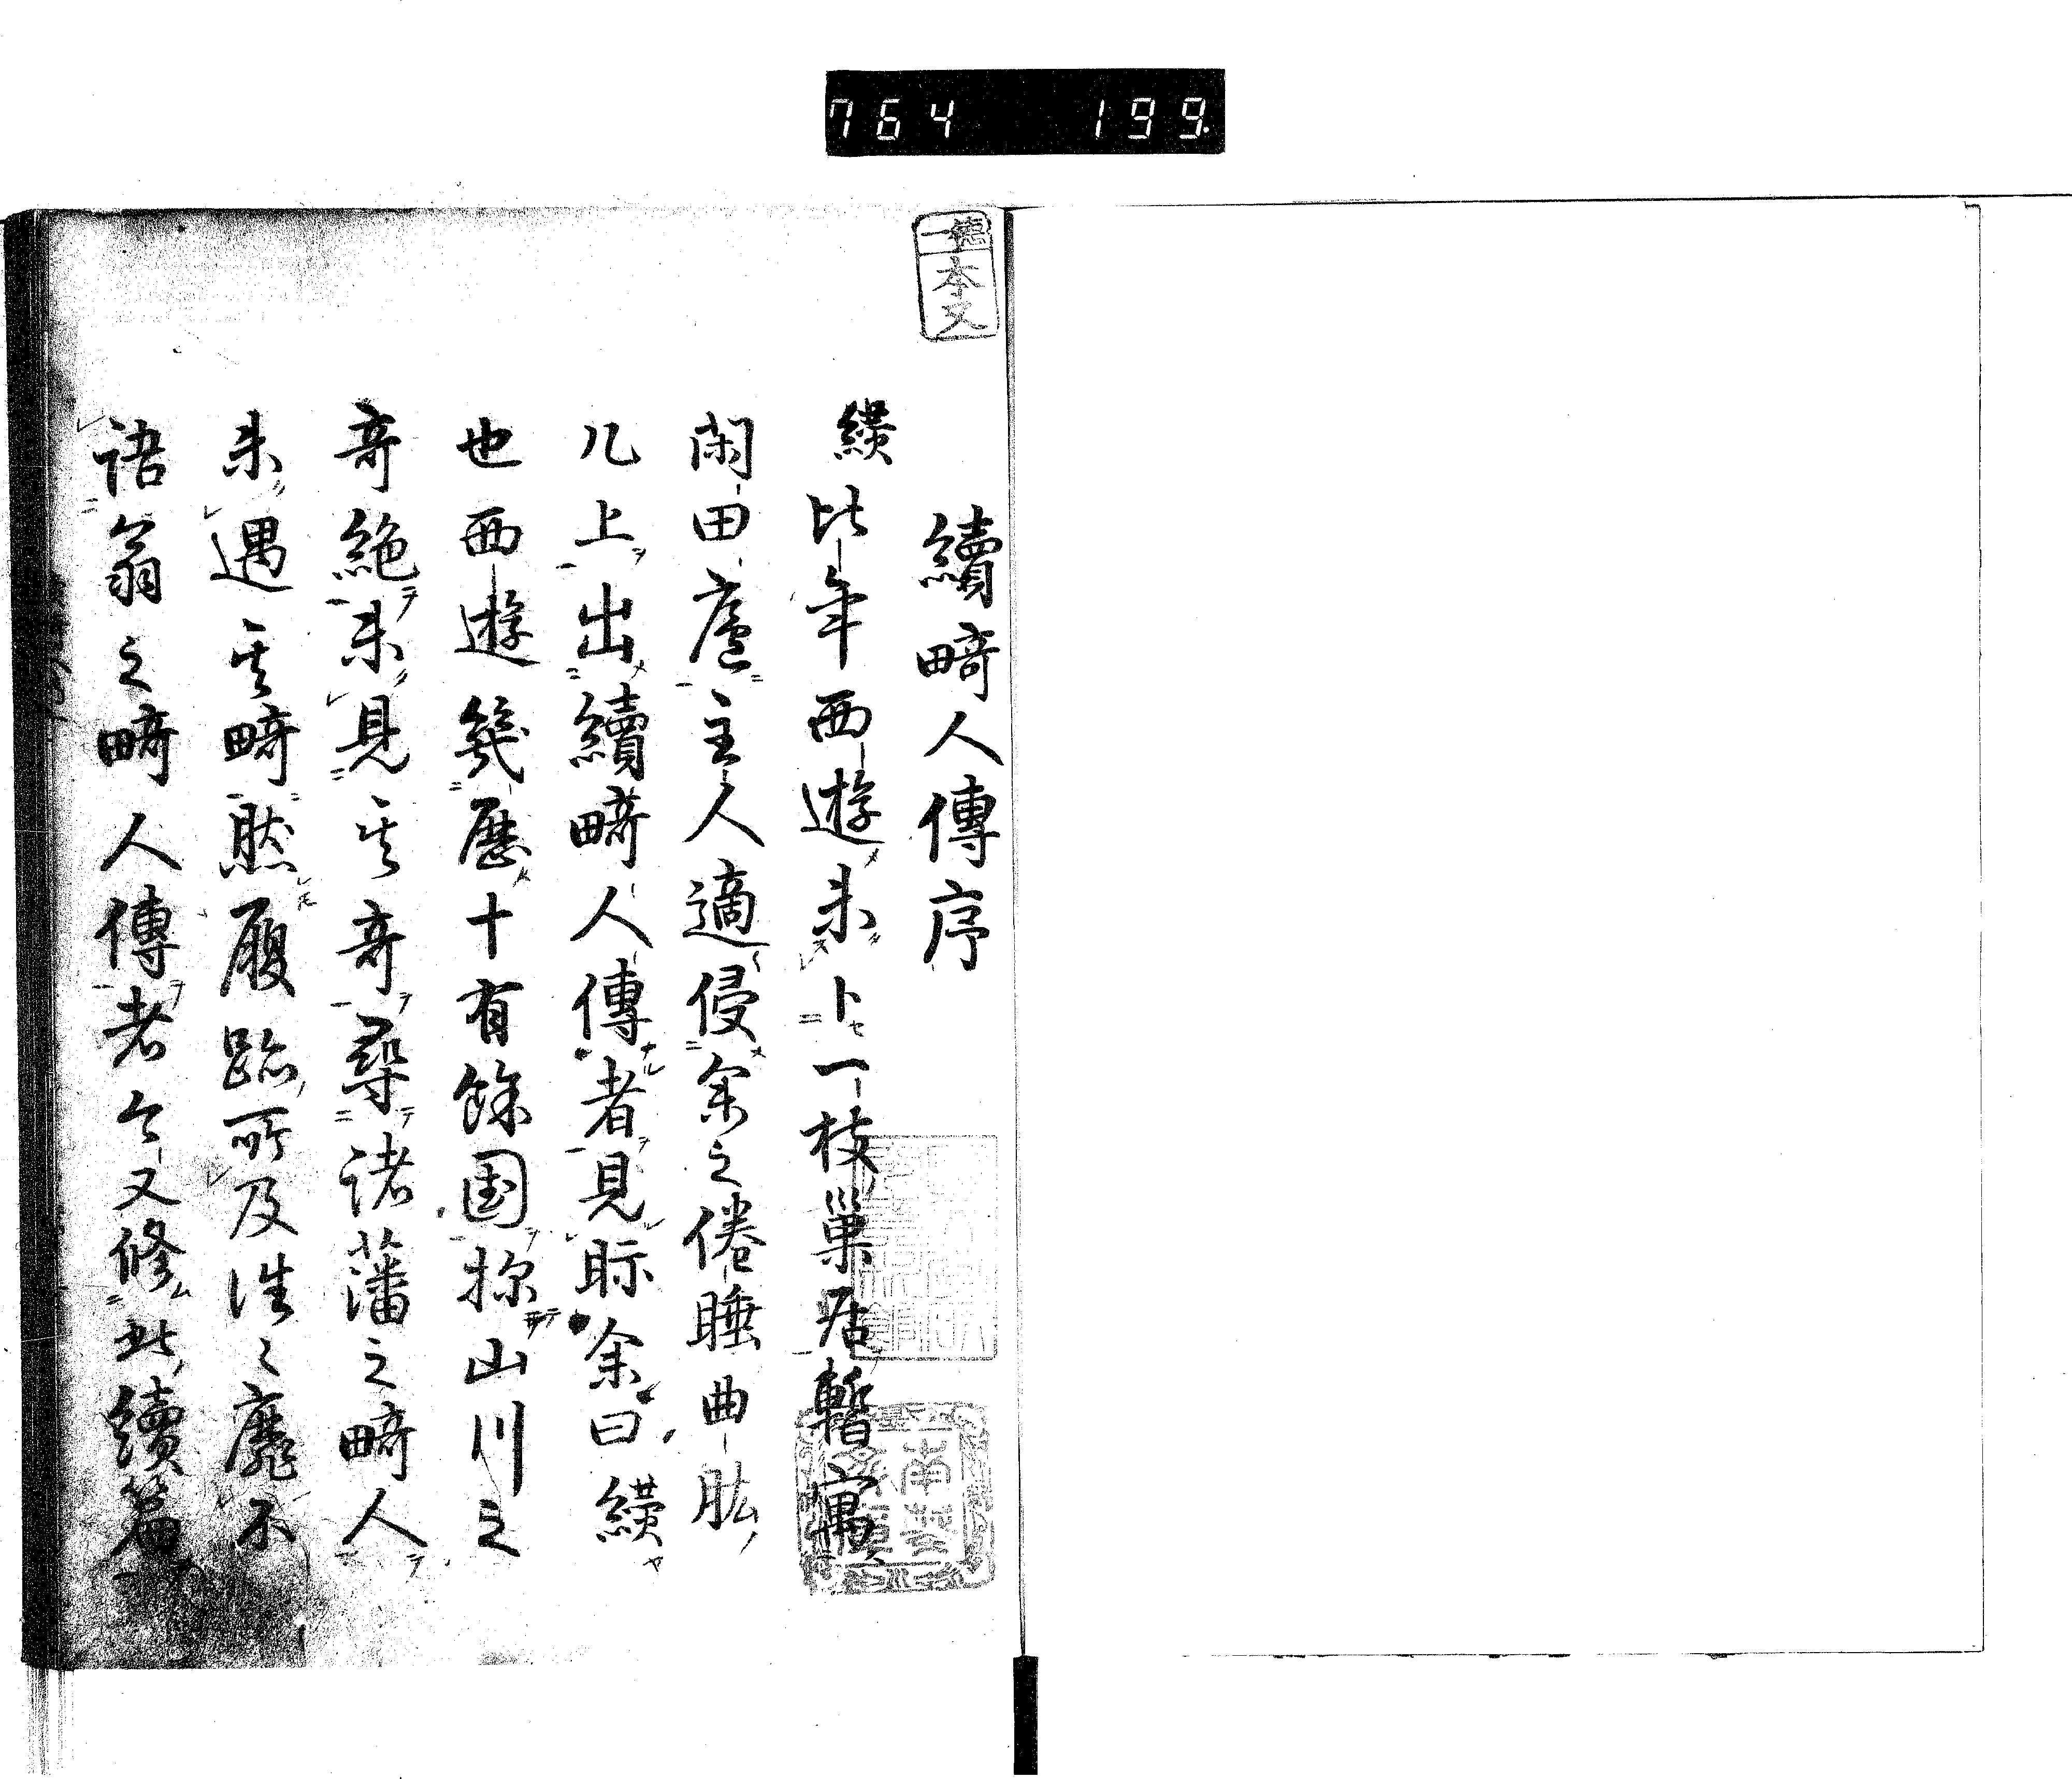 764 199.
本又
續畸人傳序
纉比年西遊未卜一枝巢居暫寓
閑田廬主人適侵余之倦睡曲肱
几上出續畸人傳者見眎余曰纉
也西遊幾歷十有餘国探山川之
奇絶未見其奇奇尋諸藩之畸人
未遇其畸然履跡所及徃〻靡不
語翁之畸人傳者今又修此續篇